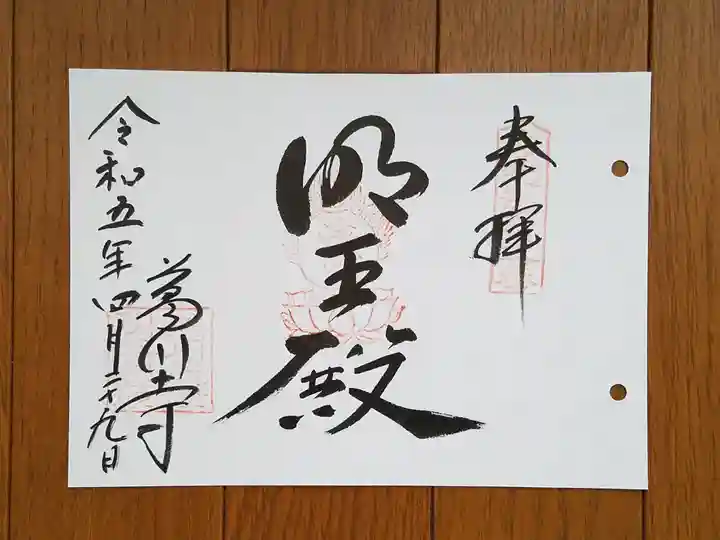 奉拝
明王殿
葛川寺
令和五年四月二十九日